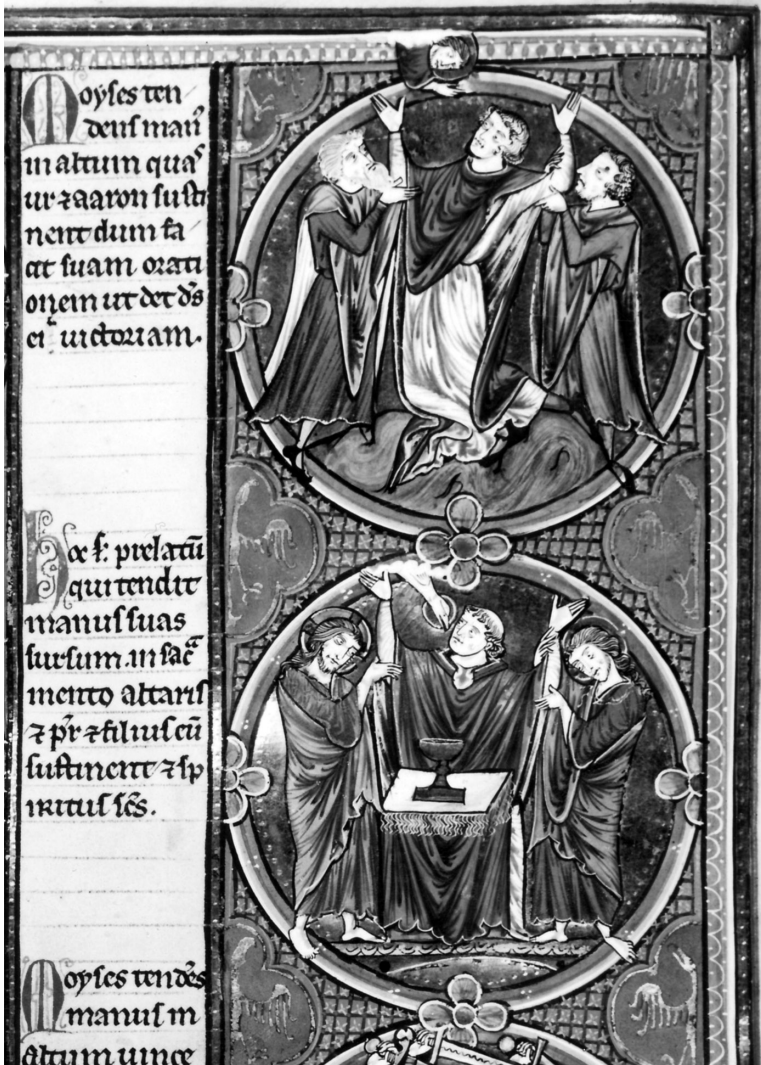 Moyses ten
dens man̄
in altum quas
ur ⁊ aaron susti
nent dum fa
cit suam orati
onem ut det d̄s
ei uictoriam.
Hoc s̄: prelatū
qui tendit
manus suas
sursum. in sac̄a
mento altaris
⁊ p̄r ⁊ filius eū
sustinent ⁊ sp
iritus sc̄s.
Moyses tendēs
manus in
altum uince